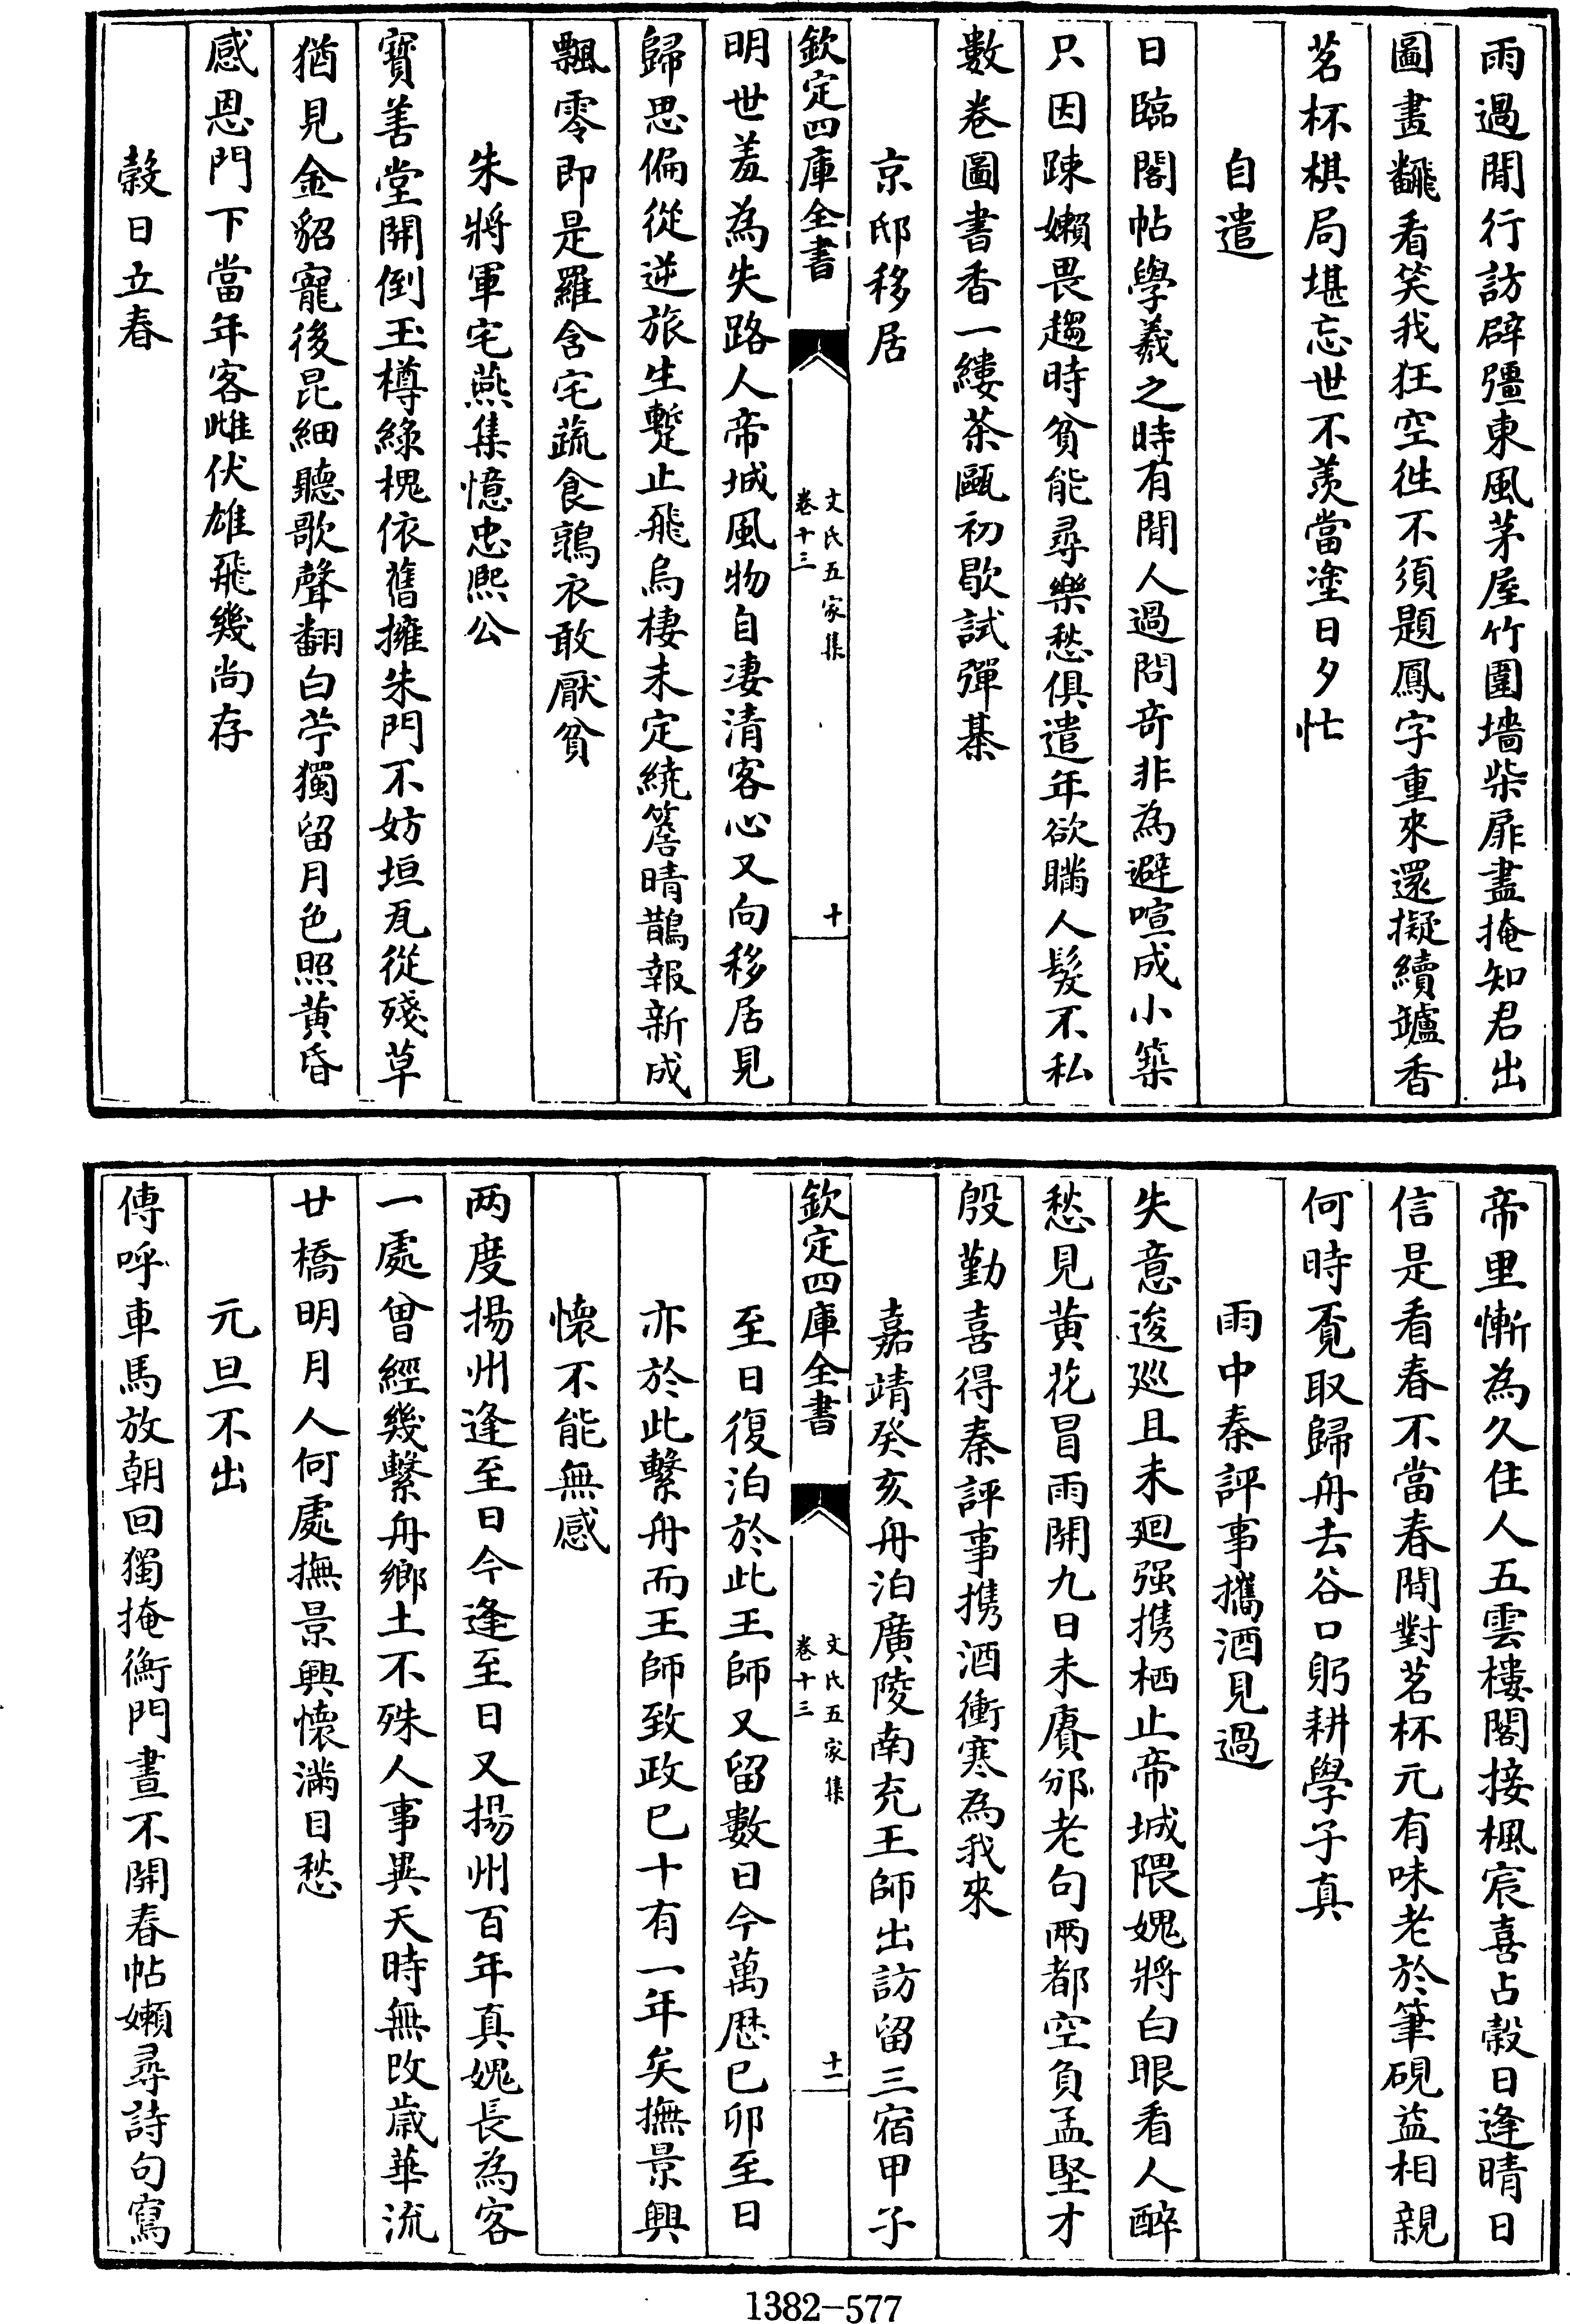 雨過閒行訪辟彊東風茅屋竹圍墻柴扉盡掩知君出
圖畫飜看笑我狂空徃不須題鳳字重來還擬續罏香
茗杯棋局堪忘世不羨當塗日夕忙
自遣
日臨閣帖學羲之時有閒人過問竒非為避喧成小築
只因踈嬾畏趨時貧能尋樂愁俱遣年欲瞞人髮不私
數卷圖書香一縷茶甌初歇試彈棊
京邸移居
欽定四庫全書
文氏五家集
卷十三
十
明世羞為失路人帝城風物自凄清客心又向移居見
歸思偏從逆旅生蹔止飛烏棲未定繞簷晴鵲報新成
飄零即是羅含宅蔬食鶉衣敢厭貧
朱將軍宅燕集憶忠熈公
寳善堂開倒玉樽綠槐依舊擁朱門不妨垣瓦從殘草
猶見金貂寵後昆細聽歌聲翻白苧獨留月色照黄昏
感恩門下當年客雌伏雄飛幾尚存
榖日立春
帝里慚為久住人五雲樓閣接楓宸喜占榖日逢晴日
信是看春不當春閒對茗杯元有味老於筆硯益相親
何時覓取歸舟去谷口躬耕學子真
雨中秦評事攜酒見過
失意逡巡且未廻强携栖止帝城隈媿將白眼看人醉
愁見黄花冒雨開九日未賡邠老句兩都空負孟堅才
殷勤喜得秦評事携酒衝寒為我來
嘉靖癸亥舟泊廣陵南充王師出訪留三宿甲子
欽定四庫全書
文氏五家集
卷十三
十一
至日復泊於此王師又留數日今萬厯已卯至日
亦於此繫舟而王師致政已十有一年矣撫景興
懷不能無感
两度揚州逢至日今逢至日又揚州百年真媿長為客
一處曾經幾繫舟鄉土不殊人事異天時無改歲華流
廿橋明月人何處撫景興懷滿目愁
元旦不出
傳呼車馬放朝回獨掩衡門晝不開春帖嬾尋詩句寫
1382-577